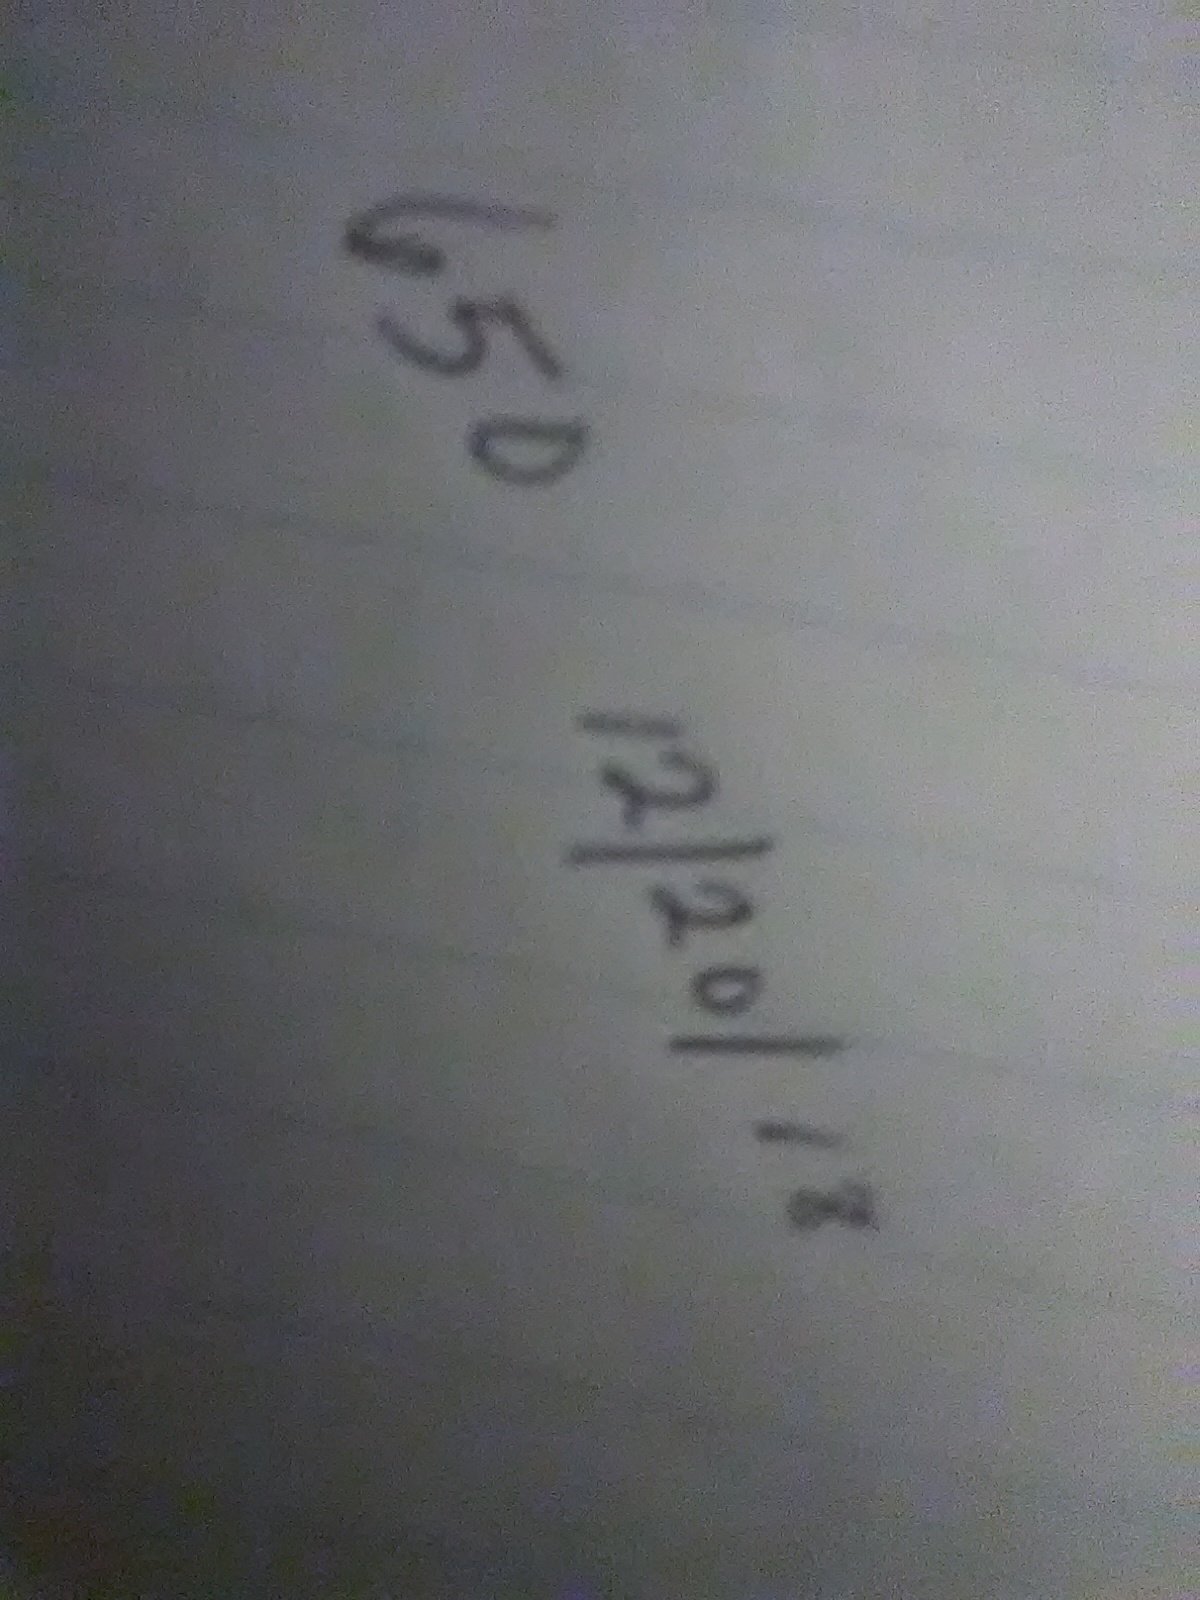 650 12/20/18